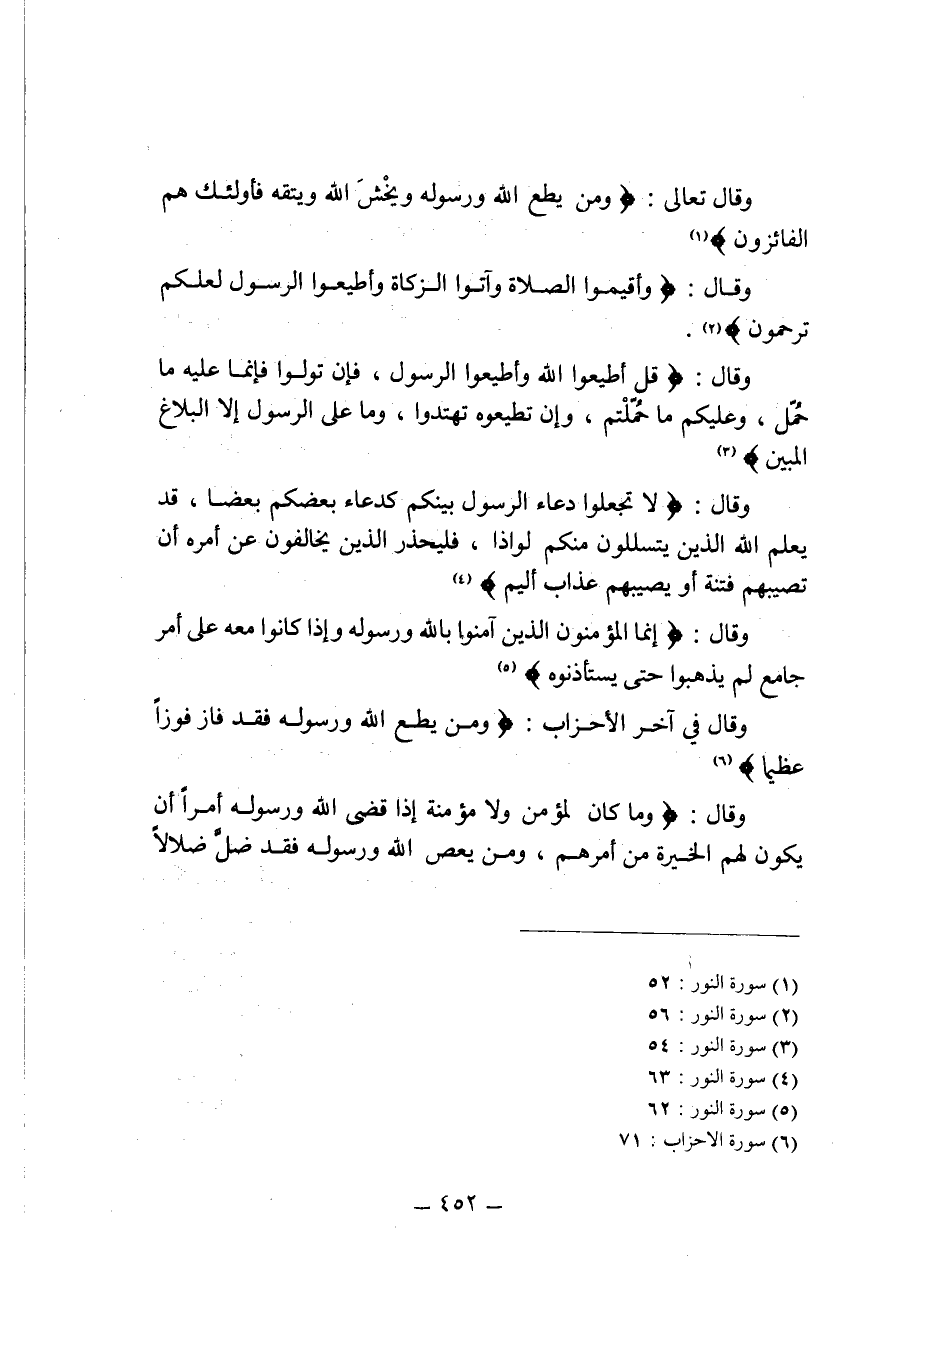 وقال تعالى : ﴿ ومن يطع الله ورسوله ويخْشَ الله ويتقه فأولئك هم
الفائزون ﴾(١)
وقال : ﴿ وأقيموا الصلاة وآتوا الزكاة وأطيعوا الرسول لعلكم
ترحمون ﴾(٢) .
وقال : ﴿ قل أطيعوا الله وأطيعوا الرسول ، فإن تولوا فإنما عليه ما
حُمّل ، وعليكم ما حُمّلْتم ، وإن تطيعوه تهتدوا ، وما على الرسول إلا البلاغ
المبين ﴾ (٣)
وقال : ﴿ لا تجعلوا دعاء الرسول بينكم كدعاء بعضكم بعضا ، قد
يعلم الله الذين يتسللون منكم لواذا ، فليحذر الذين يخالفون عن أمره أن
تصيبهم فتنة أو يصيبهم عذاب أليم ﴾ (٤)
وقال : ﴿ إنما المؤمنون الذين آمنوا بالله ورسوله وإذا كانوا معه على أمر
جامع لم يذهبوا حتى يستأذنوه ﴾ (٥)
وقال في آخر الأحزاب : ﴿ ومن يطع الله ورسوله فقد فاز فوزاً
عظيما ﴾ (٦)
وقال : ﴿ وما كان لمؤمن ولا مؤمنة إذا قضى الله ورسوله أمراً أن
يكون لهم الخيرة من أمرهم ، ومن يعص الله ورسوله فقد ضلَّ ضلالاً
(١) سورة النور : ٥٢
(٢) سورة النور : ٥٦
(٣) سورة النور : ٥٤
(٤) سورة النور : ٦٣
(٥) سورة النور : ٦٢
(٦) سورة الاحزاب : ٧١
– ٤٥٢ –